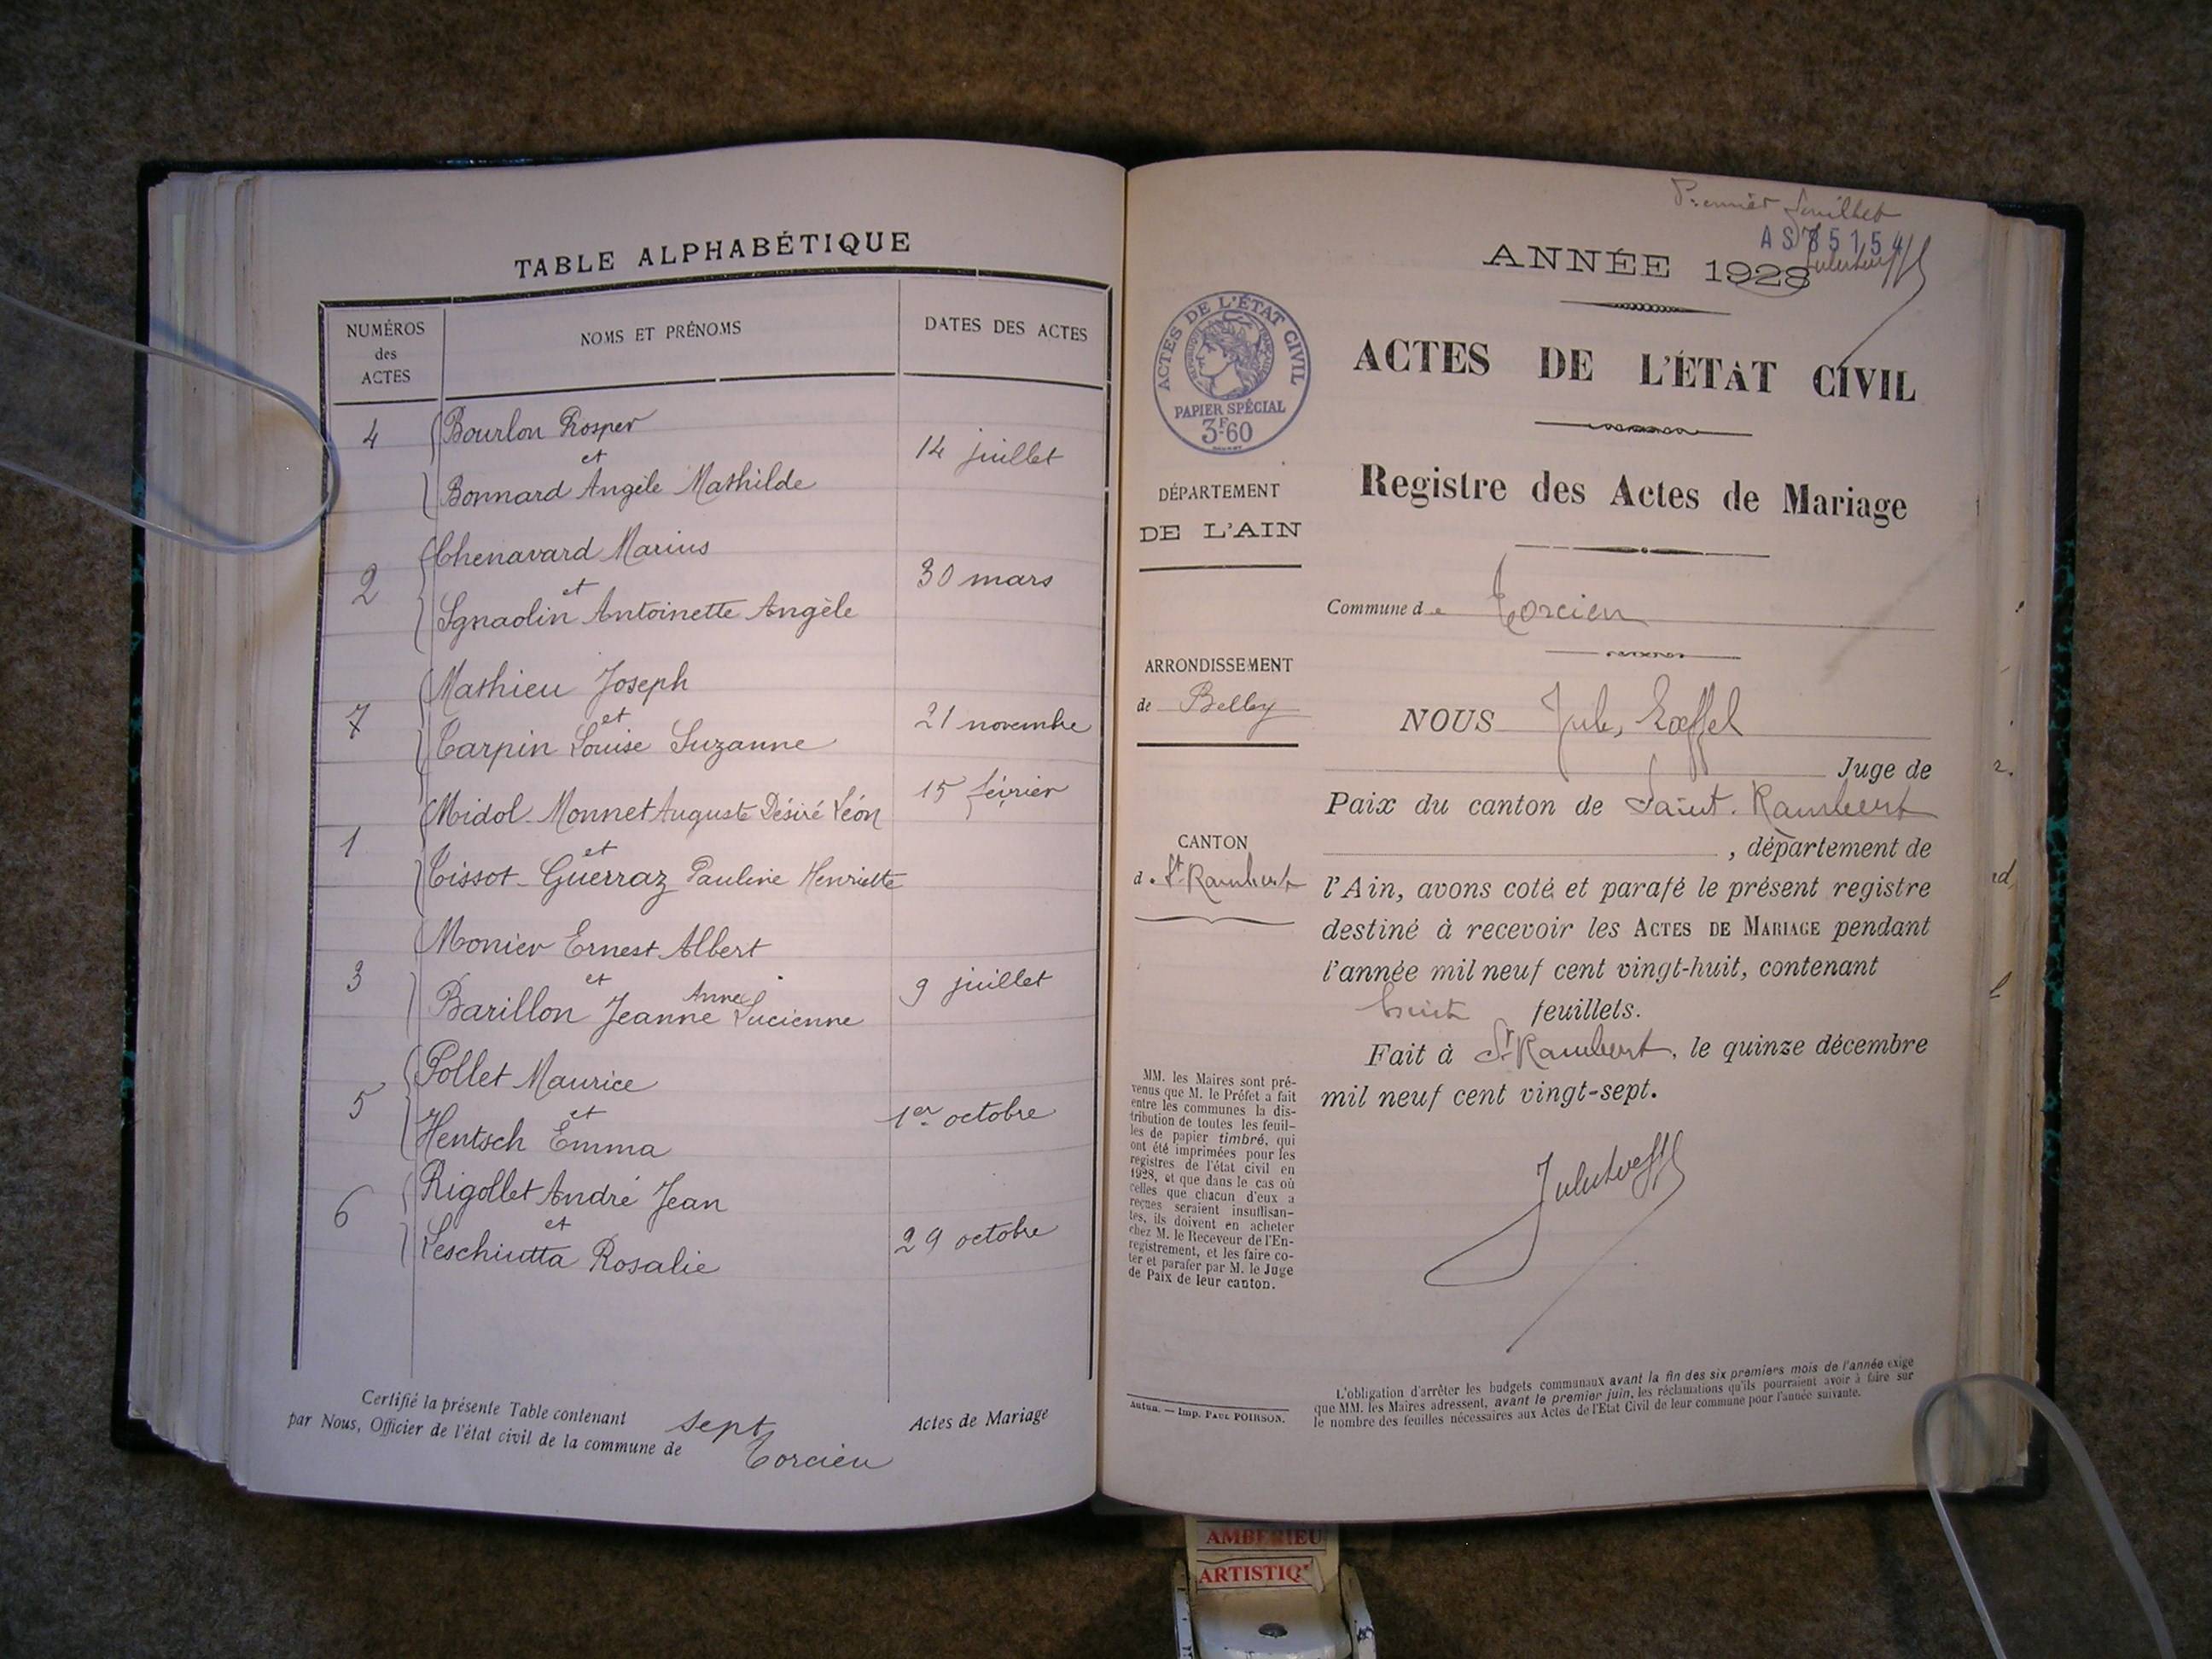 TABLE ALPHABÉTIQUE
NUMÉROS
des
ACTES
NOMS ET PRÉNOMS
DATES DES ACTES
4
Bourlon Prosper
et
Bonnard Angèle Mathilde
14 juillet
2
Chenavard Marius
et
Sgnaolin Antoinette Angèle
30 mars
7
Mathieu Joseph
et
Carpin Louise Suzanne
21 novembre
1
Midol-Monnet Auguste Désiré Léon
et
Tissot-Guerraz Pauline Henriette
15 février
3
Monier Ernest Albert
et
Barillon Jeanne Anne Lucienne
9 juillet
5
Pollet Maurice
et
Hentsch Emma
1er octobre
6
Rigollet André Jean
et
Leschiutta Rosalie
29 octobre
Certifié la présente Table contenant sept Actes de Mariage
par Nous, Officier de l'état civil de la commune de Torcieu
Premier feuillet
AS 85154
ANNÉE 1928
ACTES DE L'ÉTAT CIVIL
RÉPUBLIQUE FRANÇAISE
PAPIER SPÉCIAL
3F60
ACTES DE L'ÉTAT CIVIL
Registre des Actes de Mariage
DÉPARTEMENT
DE L'AIN
Commune de Torcieu
ARRONDISSEMENT
de Belley
CANTON
de St Rambert
NOUS Jules Loeffel
Juge de
Paix du canton de Saint-Rambert
, département de
l'Ain, avons coté et parafé le présent registre
destiné à recevoir les ACTES DE MARIAGE pendant
l'année mil neuf cent vingt-huit, contenant
huit feuillets.
Fait à St Rambert, le quinze décembre
mil neuf cent vingt-sept.
MM. les Maires sont pré-
venus que M. le Préfet a fait
entre les communes la dis-
tribution de toutes les feuil-
les de papier timbré, qui
ont été imprimées pour les
registres de l'état civil en
1928, et que dans le cas où
celles que chacun d'eux a
reçues seraient insuffisan-
tes, ils doivent en acheter
chez M. le Receveur de l'En-
registrement, et les faire co-
ter et parafer par M. le Juge
de Paix de leur canton.
Autun. — Imp. PAUL POIRSON.
L'obligation d'arrêter les budgets communaux avant la fin des six premiers mois de l'année exige
que MM. les Maires adressent, avant le premier juin, les réclamations qu'ils pourraient avoir à faire sur
le nombre des feuilles nécessaires aux Actes de l'Etat Civil de leur commune pour l'année suivante.
AMBERIEU
ARTISTIQ